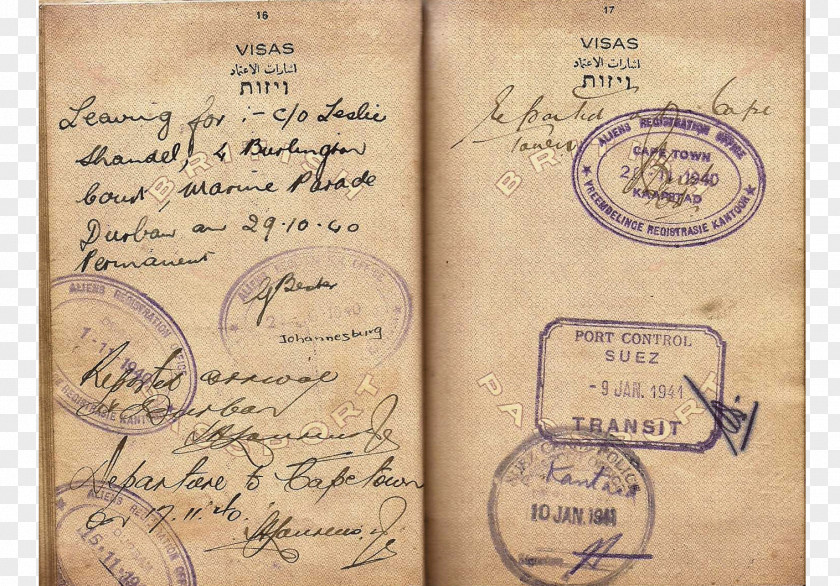 16
VISAS
اشارات الاعتماد
ויזות
Leaving for :- c/o Leslie
Shandel, 4 Burlington
Court, Marine Parade
Durban on 29.10.40
Permanent
ALIENS REGISTRATION OFFICE
1-11-1940
REGISTRASIE KANTOOR
G Bester
Johannesburg
Reported arrival
Durban
Departure to Cape Town
on 17.11.40.
ALIENS REGISTRATION
15.11.19
BRITISH
PASSPORT
17
VISAS
اشارات الاعتماد
ויזות
Reported Cape
Town
ALIENS REGISTRATION OFFICE
CAPE TOWN
1940
KAAPSTAD
VREEMDELINGE REGISTRASIE KANTOOR
PORT CONTROL
SUEZ
- 9 JAN. 1941
TRANSIT
SUEZ POLICE
Kantara
10 JAN. 1941
Signature